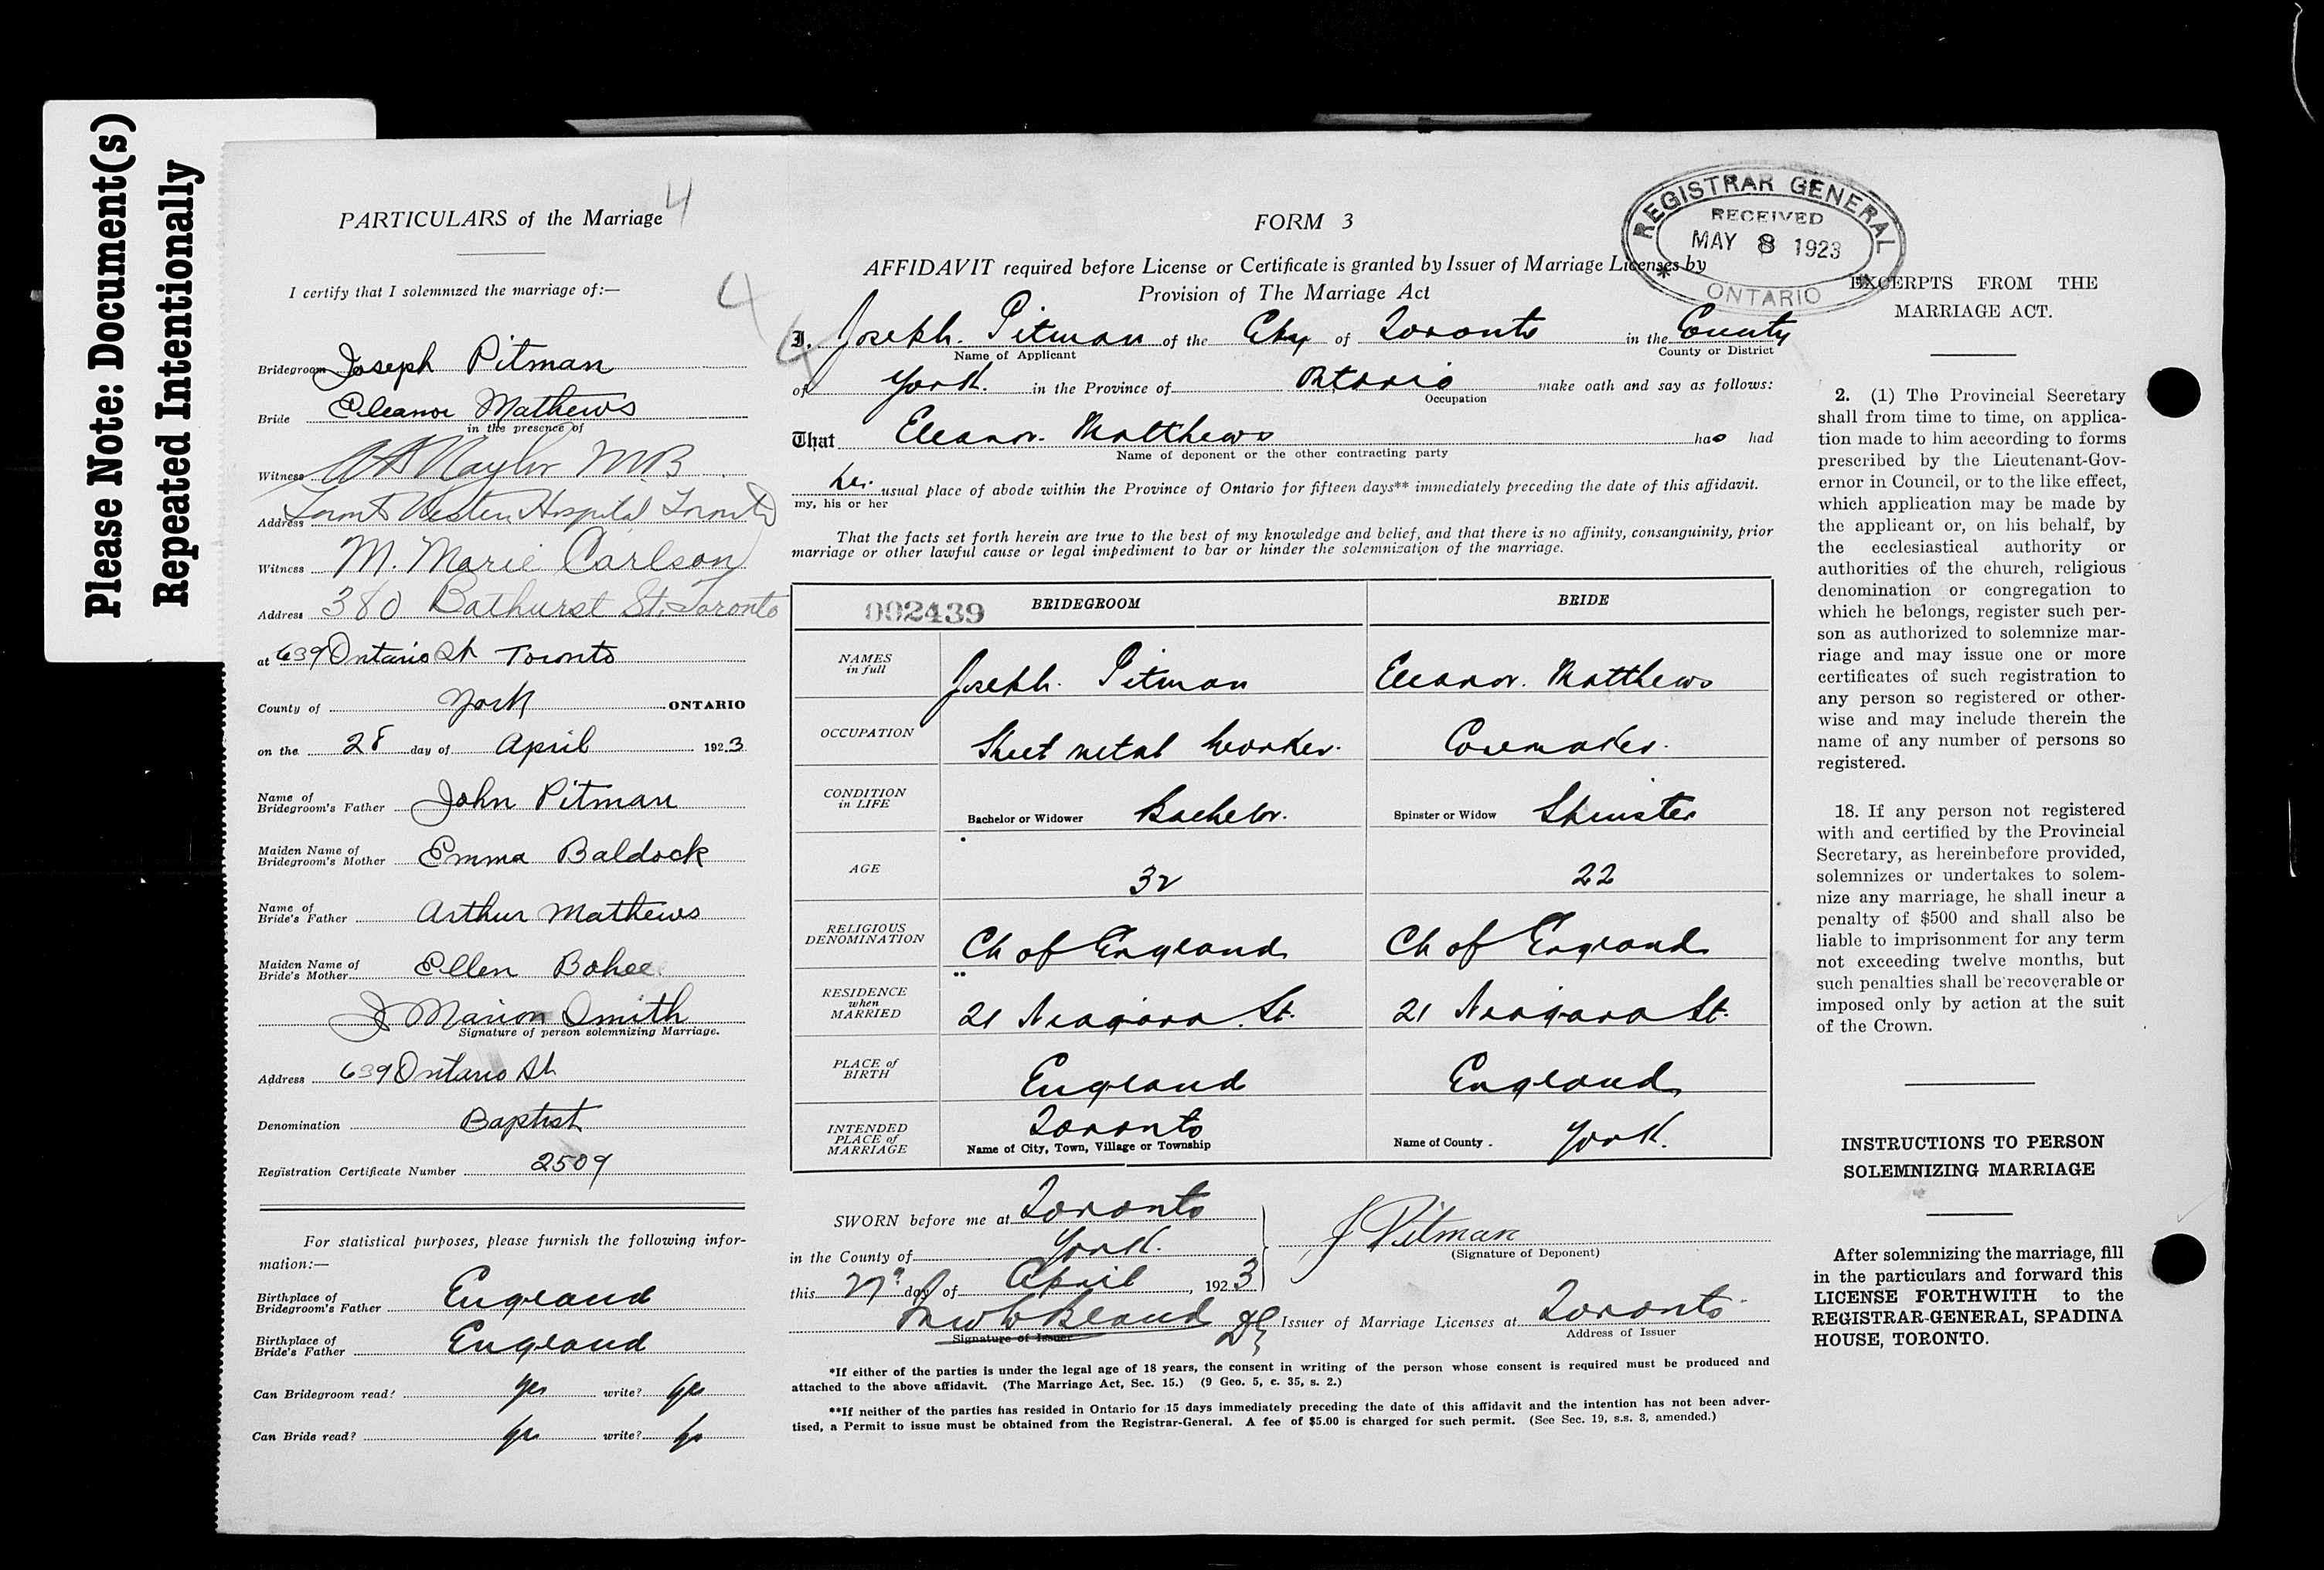 Please Note: Document(s)
Repeated Intentionally
PARTICULARS of the Marriage 4
I certify that I solemnized the marriage of:—
Bridegroom Joseph Pitman
Bride Eleanor Mathews
in the presence of
Witness Naylor MB
Address Toronto Western Hospital Toronto
Witness M. Marie Carlson
Address 380 Bathurst St. Toronto
at 639 Ontario St Toronto
County of York ONTARIO
on the 28 day of April 1923
Name of
Bridegroom's Father John Pitman
Maiden Name of
Bridegroom's Mother Emma Baldock
Name of
Bride's Father Arthur Mathews
Maiden Name of
Bride's Mother Ellen Bohee
J Marion Smith
Signature of person solemnizing Marriage.
Address 639 Ontario St
Denomination Baptist
Registration Certificate Number 2509
For statistical purposes, please furnish the following infor-
mation:—
Birthplace of
Bridegroom's Father England
Birthplace of
Bride's Father England
Can Bridegroom read? yes write? yes
Can Bride read? yes write? yes
FORM 3
REGISTRAR GENERAL
RECEIVED
MAY 8 1923
* ONTARIO *
AFFIDAVIT required before License or Certificate is granted by Issuer of Marriage Licenses by
Provision of The Marriage Act
4
4
I, Joseph. Pitman of the City of Toronto in the County
Name of Applicant County or District
of York. in the Province of Ontario make oath and say as follows:
Occupation
That Eleanor. Matthews has had
Name of deponent or the other contracting party
her usual place of abode within the Province of Ontario for fifteen days** immediately preceding the date of this affidavit.
my, his or her
That the facts set forth herein are true to the best of my knowledge and belief, and that there is no affinity, consanguinity, prior
marriage or other lawful cause or legal impediment to bar or hinder the solemnization of the marriage.
002439 BRIDEGROOM BRIDE
NAMES
in full Joseph. Pitman Eleanor. Matthews
OCCUPATION Sheet metal Worker. Coremaker.
CONDITION
in LIFE Bachelor or Widower Bachelor. Spinster or Widow Spinster
AGE 32 22
RELIGIOUS
DENOMINATION Ch of England Ch of England
RESIDENCE
when
MARRIED 21 Niagara St. 21 Niagara St.
PLACE of
BIRTH England England
INTENDED
PLACE of
MARRIAGE Toronto York.
Name of City, Town, Village or Township Name of County
SWORN before me at Toronto
in the County of York. J Pitman
(Signature of Deponent)
this 27 day of April, 1923
Signature of Issuer Issuer of Marriage Licenses at Toronto
Address of Issuer
*If either of the parties is under the legal age of 18 years, the consent in writing of the person whose consent is required must be produced and
attached to the above affidavit. (The Marriage Act, Sec. 15.) (9 Geo. 5, c. 35, s. 2.)
**If neither of the parties has resided in Ontario for 15 days immediately preceding the date of this affidavit and the intention has not been adver-
tised, a Permit to issue must be obtained from the Registrar-General. A fee of $5.00 is charged for such permit. (See Sec. 19, s.s. 3, amended.)
EXCERPTS FROM THE
MARRIAGE ACT.
2. (1) The Provincial Secretary
shall from time to time, on applica-
tion made to him according to forms
prescribed by the Lieutenant-Gov-
ernor in Council, or to the like effect,
which application may be made by
the applicant or, on his behalf, by
the ecclesiastical authority or
authorities of the church, religious
denomination or congregation to
which he belongs, register such per-
son as authorized to solemnize mar-
riage and may issue one or more
certificates of such registration to
any person so registered or other-
wise and may include therein the
name of any number of persons so
registered.
18. If any person not registered
with and certified by the Provincial
Secretary, as hereinbefore provided,
solemnizes or undertakes to solem-
nize any marriage, he shall incur a
penalty of $500 and shall also be
liable to imprisonment for any term
not exceeding twelve months, but
such penalties shall be recoverable or
imposed only by action at the suit
of the Crown.
INSTRUCTIONS TO PERSON
SOLEMNIZING MARRIAGE
After solemnizing the marriage, fill
in the particulars and forward this
LICENSE FORTHWITH to the
REGISTRAR-GENERAL, SPADINA
HOUSE, TORONTO.